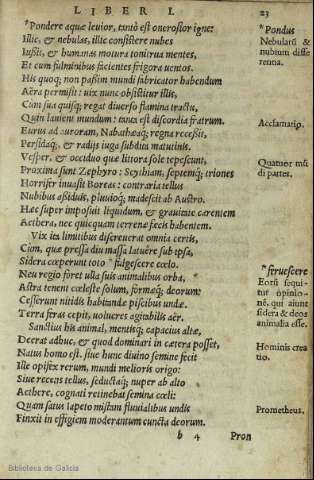 LIBER I.
23
*Pondere aquæ leuior, tantò est onerosior igne:
Illic, & nebulas, illic consistere nubes
Iussit, & humanas motura tonitrua mentes,
Et cum fulminibus facientes frigora uentos.
His quoq; non passim mundi fabricator habendum
Aëra permisit: uix nunc obsistitur illis,
Cùm sua quisq; regat diuerso flamina tractu,
Quin lanient mundum: tanta est discordia fratrum.
Eurus ad auroram, Nabathæaq; regna recessit,
Persidaq;, & radijs iuga subdita matutinis.
Vesper, & occiduo quæ littora sole tepescunt,
Proxima sunt Zephyro: Scythiam, septemq; triones
Horrifer inuasit Boreas: contraria tellus
Nubibus aßiduis, pluuioq; madescit ab Austro.
Hæc super imposuit liquidum, & grauitate carentem
Aethera, nec quicquam terrenæ fæcis habentem.
Vix ita limitibus discreuerat omnia certis,
Cùm, quæ pressa diu massa latuere sub ipsa,
Sidera cœperunt toto *fulgescere cœlo.
Neu regio foret ulla suis animalibus orba,
Astra tenent cœleste solum, formæq; deorum:
Cesserunt nitidis habitandæ piscibus undæ.
Terra feras cepit, uolucres agitabilis aër.
Sanctius his animal, mentisq; capacius altæ,
Deerat adhuc, & quod dominari in cætera posset,
Natus homo est. siue hunc diuino semine fecit
Ille opifex rerum, mundi melioris origo:
Siue recens tellus, seductaq; nuper ab alto
Aethere, cognati retinebat semina cœli:
Quam satus Iapeto mistam fluuialibus undis
Finxit in effigiem moderantum cuncta deorum.
b 4
Pron
*Pondus
Nebularũ &
nubium diffe
rentia.
Acclamatio.
Quatuor mũ
di partes.
*feruescere
Eorũ sequi-
tur opinio-
nẽ, qui aiunt
sidera & deos
animalia esse.
Hominis crea
tio.
Prometheus.
Biblioteca de Galicia